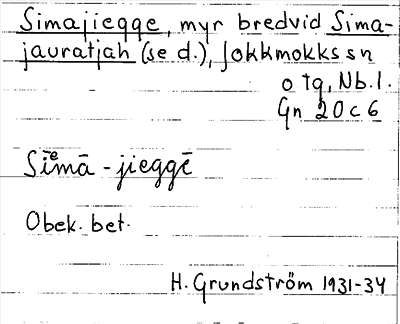 Simajiegge, myr bredvid Sima-
jauratjah (se d.), Jokkmokks sn
o tg, Nb.l.
Gn 20 c 6
Sīemā - jieggē
Obek. bet.
H. Grundström 1931-34